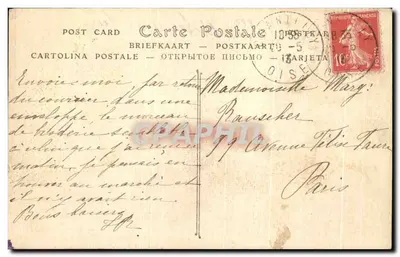 POST CARD
Carte Postale
POSTKART
BRIEFKAART — POSTKAART
CARTOLINA POSTALE — ОТКРЫТОЕ ПИСЬМО — TARJETA
10
OISE
Envoies moi par retour
du courrier dans une
enveloppe le morceau
de
à celui que j'ai
matin, Je pensais en
trouver au marché et
il n'y avait rien
Bons baisers
Mademoiselle Mary
Rauscher
99 Avenue Félix Faure
Paris